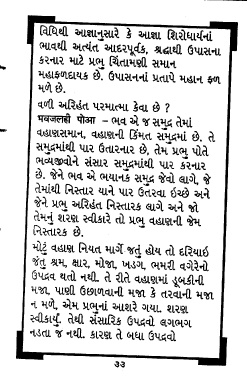 વિધિથી આજ્ઞાનુસારે કે આજ્ઞા શિરોધાર્યનાં
ભાવથી અત્યંત આદરપૂર્વક, શ્રદ્ધાથી ઉપાસના
કરનાર માટે પ્રભુ ચિંતામણી સમાન
મહાફળદાયક છે. ઉપાસનનાં પ્રતાપે મહાન ફળ
મળે છે.
વળી અરિહંત પરમાત્મા કેવા છે ?
ભવજલહી પોઆ – ભવ એ જ સમુદ્ર તેમાં
વહાણસમાન, વહાણની કિંમત સમુદ્રમાં છે. તે
સમુદ્રમાંથી પાર ઉતારનાર છે, તેમ પ્રભુ પોતે
ભવ્યજીવોને સંસાર સમુદ્રમાંથી પાર કરનાર
છે. જેને ભવ એ ભયાનક સમુદ્ર જેવો લાગે, જે
તેમાંથી નિસ્તાર યાને પાર ઉતરવા ઇચ્છે અને
જેને પ્રભુ અરિહંત નિસ્તારક લાગે અને જો
તેમનું શરણ સ્વીકારે તો પ્રભુ વહાણની જેમ
નિસ્તારક છે.
મોટું વહાણ નિયત માર્ગે જતું હોય તો દરિયાઇ
જંતુ શ્રમ, ક્ષાર, મોજા, ખડગ, ભમરી વગેરેનો
ઉપદ્રવ થતો નથી. તે રીતે વહાણમાં ડૂબકીની
મજા, પાણી ઉછાળવાની મજા કે તરવાની મજા
ન મળે, એમ પ્રભુનાં આશરે ગયા. શરણ
સ્વીકાર્યું. તેથી સંસારિક ઉપદ્રવો લગભગ
નડતા જ નથી. કારણ તે બધા ઉપદ્રવો
૩૩